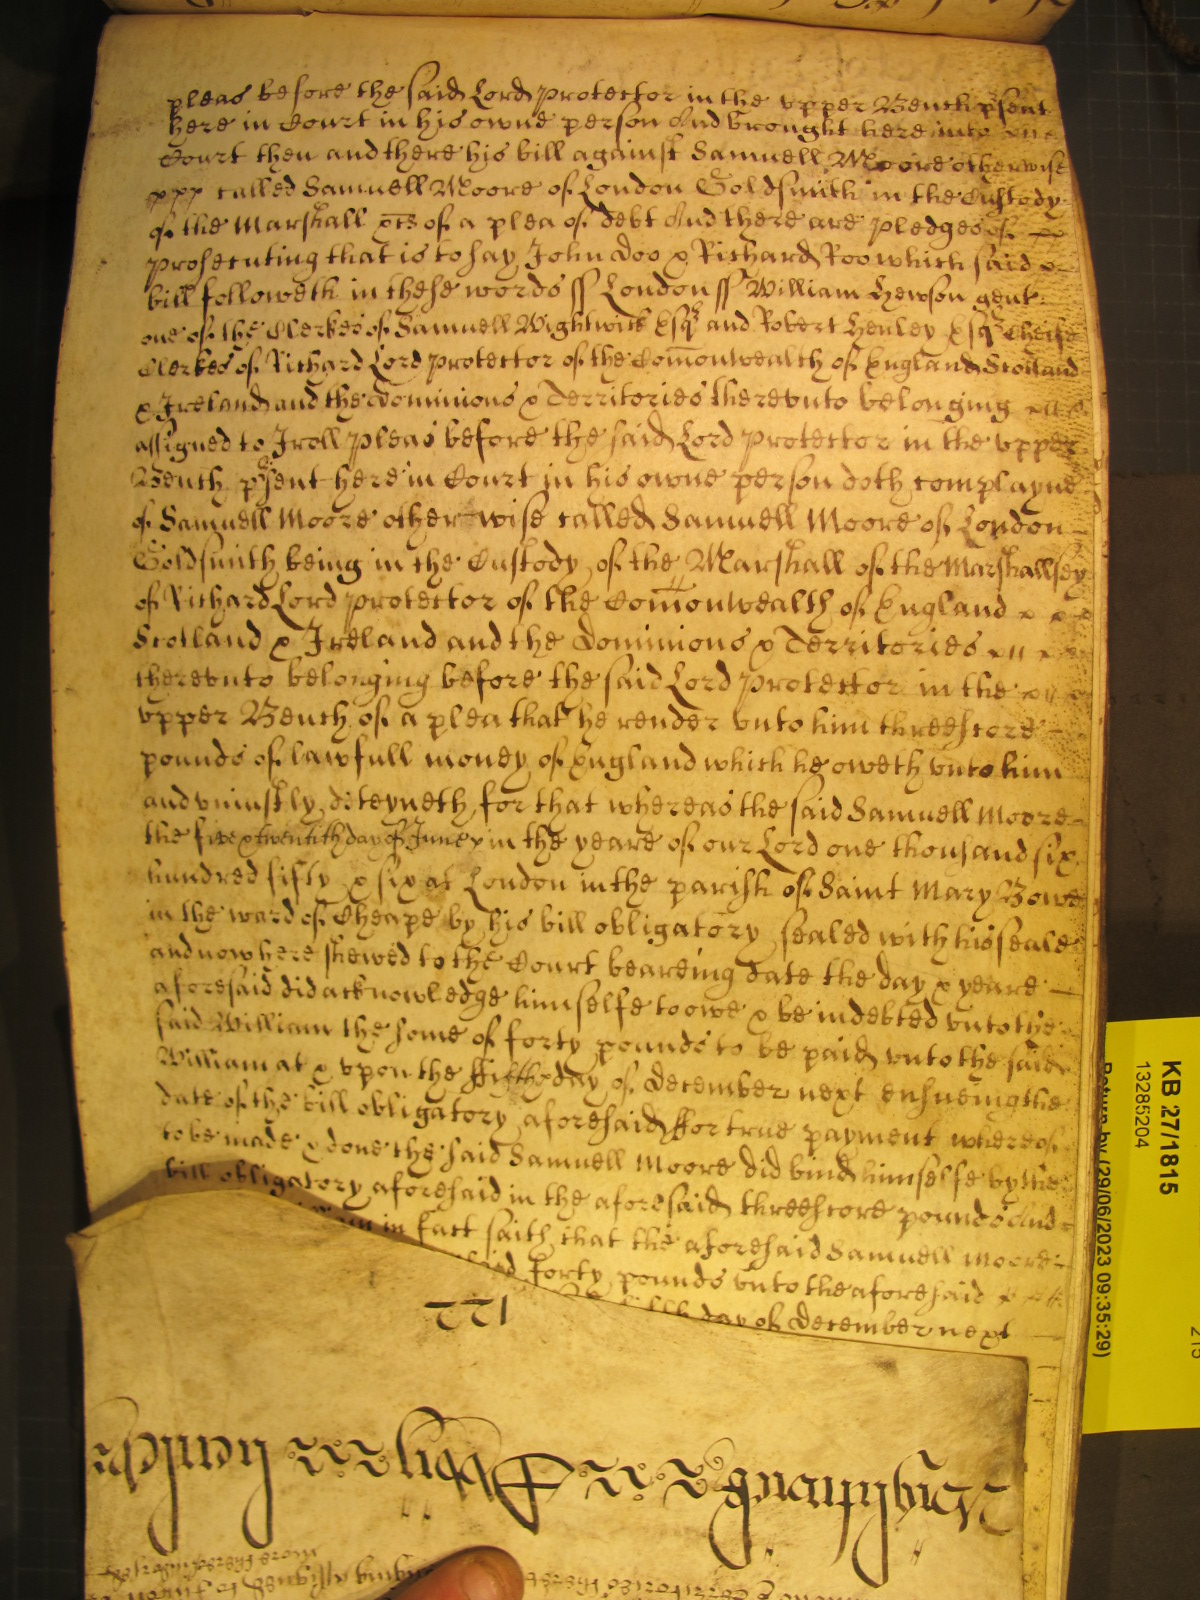 pleas before the said Lord Protector in the vpper Bench psent
here in Court in his owne person And brought here into
Court then and there his bill against Samuell Moore otherwise
called Samuell Moore of London Goldsmith in the Custody
of the Marshall &c of a plea of debt And there are pledges of
prosecuting that is to say John Doo & Richard Roo which said
bill followeth in these words ss London ss William Hewson gent
one of the Clerkes of Samuell Wightwick Esqr and Robert Henley Esqr Cheife
Clerkes of Richard Lord Protector of the Comonwealth of England Scotland
& Ireland and the Dominions & Territories therevnto belonging
assigned to Iroll pleas before the said Lord Protector in the vpper
Bench psent here in Court in his owne person doth complayne
of Samuell Moore other-wise called Samuell Moore of London
Goldsmith being in the Custody of the Marshall of the Marshallsey
of Richard Lord Protector of the Comonwealth of England
Scotland & Ireland and the Dominions & Territories
therevnto belonging before the said Lord Protector in the
vpper Bench of a plea that he render vnto him threescore
pounds of lawfull money of England which he oweth vnto him
and vniustly deteyneth for that whereas the said Samuell Moore
the five & twentith day of June in the yeare of our Lord one thousand six
hundred fifty & six at London in the parish of Saint Mary Bowe
in the ward of Cheape by his bill obligatory sealed with his seale
and now here shewed to the Court beareing date the day & yeare
aforesaid did acknowledge himselfe to owe & be indebted vnto the
said William the some of forty pounds to be paid vnto the said
William at & vpon the day of December next ensueing the
date of the bill obligatory aforesaid ffor true payment whereof
to be made & done the said Samuell Moore did bind himselfe by the
bill obligatory aforesaid in the aforesaid threescore pounds And
in fact saith that the aforesaid Samuell Moore
forty pounds vnto the aforesaid
day of December next
122
Wightwick
KB 27/1815
13285204
Return by (29/06/2023 09:35:29)